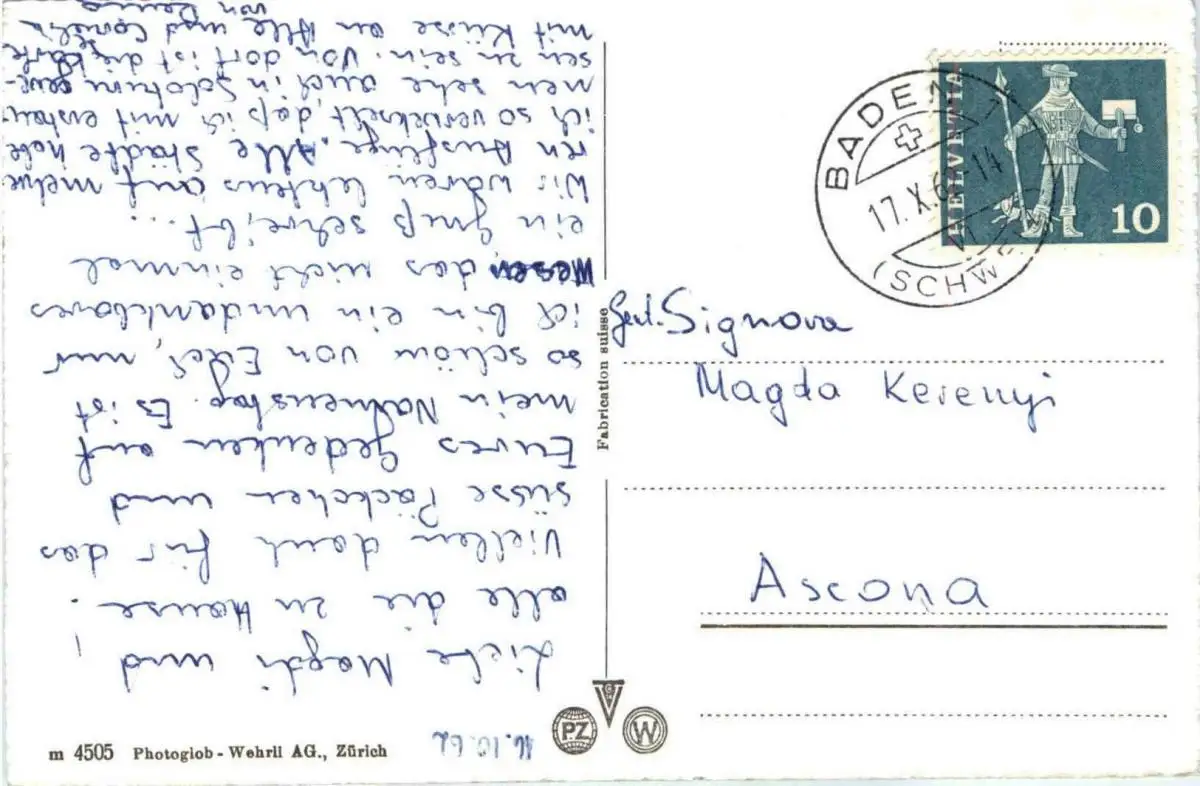 16.10.62
Liebe Magdi und
alle die zu Hause!
Viellen dank für das
süsse Päckchen und
Eures Gedenken auf
mein Nahmenstag. Es ist
so schön von Euch, nur
ich bin ein undankbares
Wesen, das nicht einmal
ein Gruß schreibt...
Wir waren letztens auf mehre-
ren Ausflüge. Alle Städte habe
ich so verwekselt, daß ich mit erstau-
nen sehe auch in Solothurn gewe-
sen zu sein. Von dort ist die Karte
mit Küsse an Alle und
von
HELVETIA
10
BADEN
17.X.62-14
(SCHWEIZ)
Signora
Magda Kerenyi
Ascona
Fabrication suisse
PZ
W
m 4505 Photoglob-Wehrli AG., Zürich